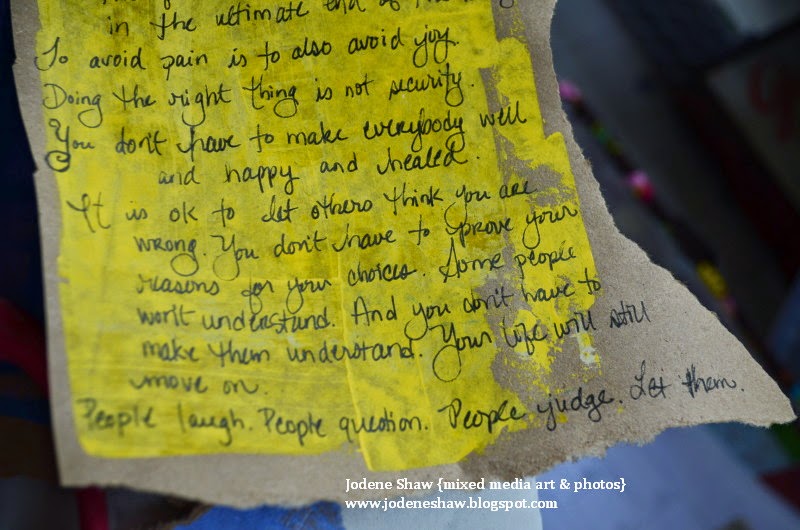 in the ultimate end of
To avoid pain is to also avoid joy.
Doing the right thing is not security.
You don't have to make everybody well
and happy and healed.
It is ok to let others think you are
wrong. You don't have to prove your
reasons for your choices. Some people
won't understand. And you don't have to
make them understand. Your life will still
move on.
People laugh. People question. People judge. Let them.
Jodene Shaw {mixed media art & photos}
www.jodeneshaw.blogspot.com